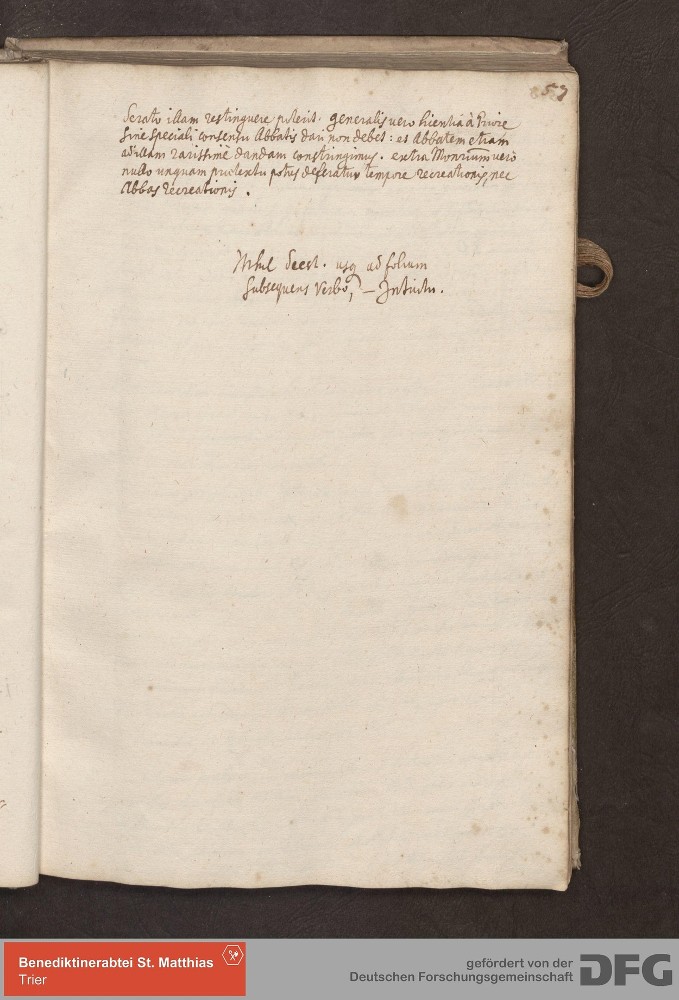 57
serato illam restinguere poterit. generalis vero licentia à Priore
sine speciali consensu Abbatis dari non debet: et Abbatem etiam
ad illam rarissimè dandam constringimus. extra Monrium vero
nullo unquam praetextu potus deferatur tempore recreationis, nec
Abbas recreationis.
Nihil deest. usq ad folium
subsequens verbo, – Intuitu.
Benediktinerabtei St. Matthias
Trier
gefördert von der
Deutschen Forschungsgemeinschaft
DFG